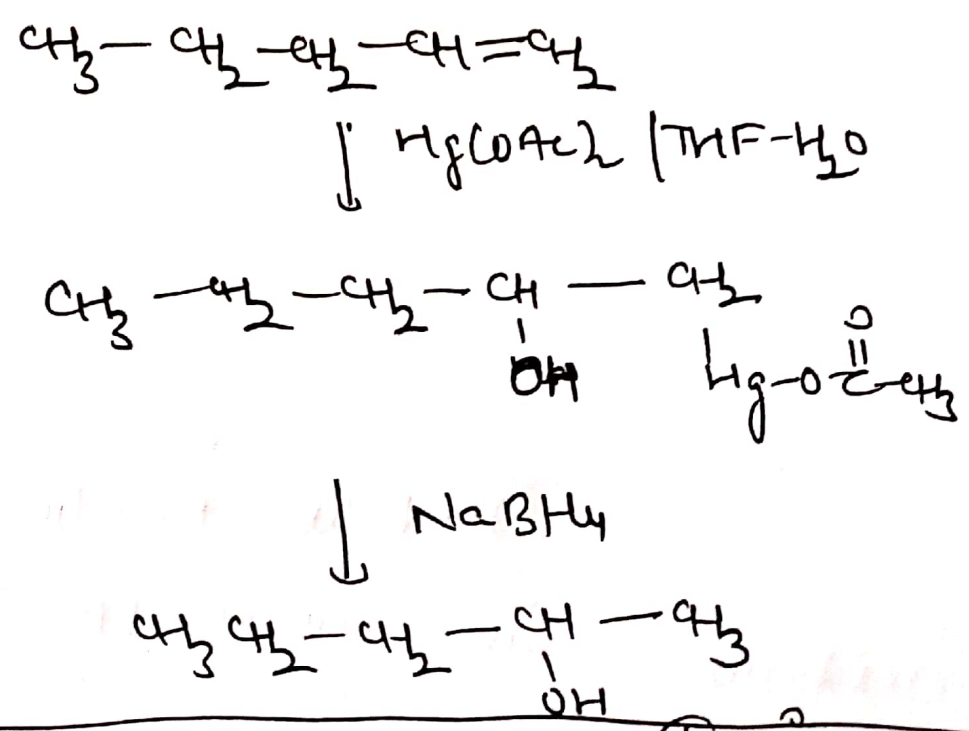 CH3— CH2—CH2—CH=CH2
Hg(OAc)2 | THF-H2O
CH3—CH2—CH2—CH—CH2
OH Hg-O-C-CH3
O
NaBH4
CH3 CH2—CH2—CH—CH3
OH